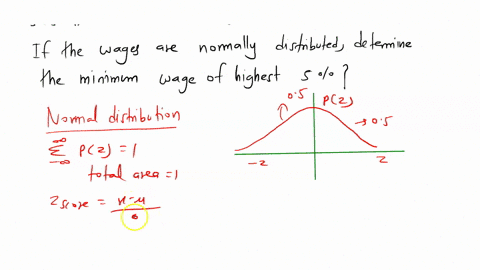 If the wages are normally distributed, determine
the minimum wage of highest 5%?
Normal distribution
∞
Σ P(z) = 1
-∞
total area = 1
z score = x-μ
σ
0.5
P(z)
→ 0.5
-z
z